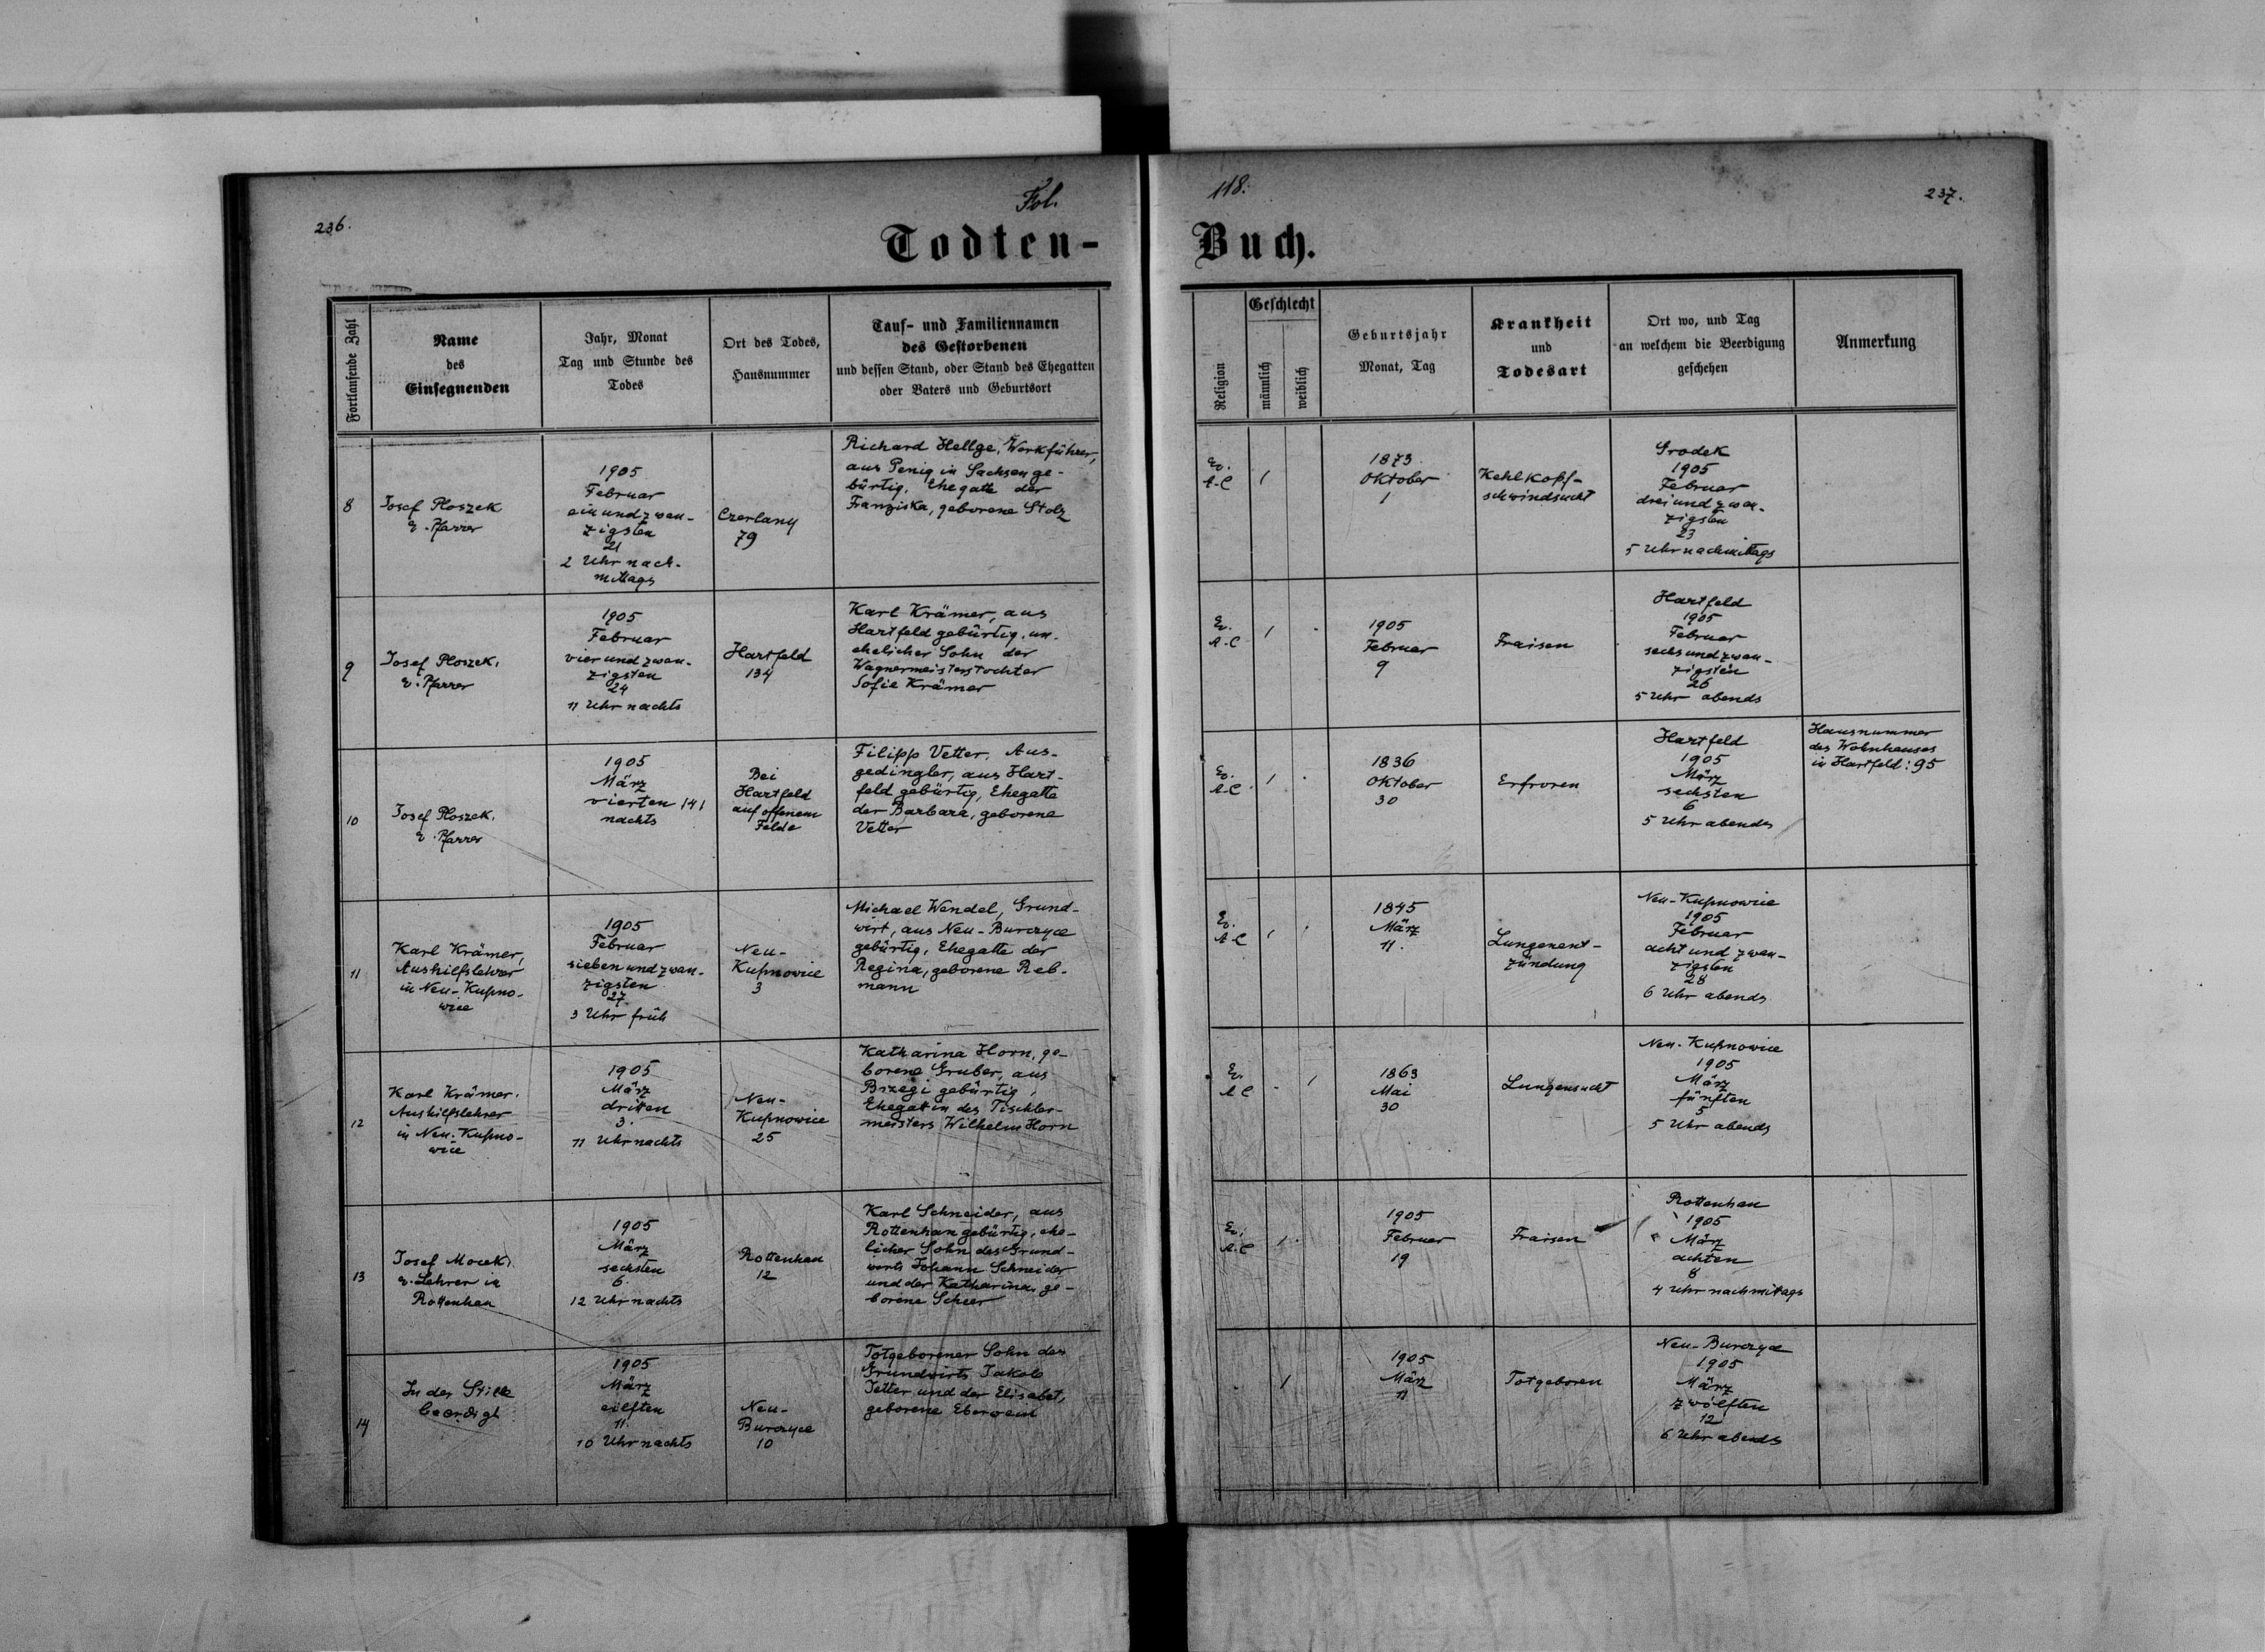 236.
Fol.
118.
237.
Todten-
Buch.
Fortlaufende Zahl
Name
des
Einsegnenden
Jahr, Monat
Tag und Stunde des
Todes
Ort des Todes,
Hausnummer
Tauf- und Familiennamen
des Gestorbenen
und dessen Stand, oder Stand des Ehegatten
oder Vaters und Geburtsort
Religion
Geschlecht
männlich
weiblich
Geburtsjahr
Monat, Tag
Krankheit
und
Todesart
Ort wo, und Tag
an welchem die Beerdigung
geschehen
Anmerkung
8
Josef Ploszek
e. Pfarrer
1905
Februar
einundzwan-
zigsten
21
2 Uhr nach-
mittags
Czerlany
79
Richard Hellge, Werkführer,
aus Penig in Sachsen ge-
bürtig, Ehegatte der
Franziska, geborene Stolz
Ev.
A-C
1
1873
Oktober
1
Kehlkopf-
schwindsucht
Grodek
1905
Februar
dreiundzwan-
zigsten
23
5 Uhr nachmittags
9
Josef Ploszek,
e. Pfarrer
1905
Februar
vierundzwan-
zigsten
24
11 Uhr nachts
Hartfeld
134
Karl Krämer, aus
Hartfeld gebürtig, un-
ehelicher Sohn der
Wagnermeisterstochter
Sofie Krämer
Ev.
A-C
1
1905
Februar
9
Fraisen
Hartfeld
1905
Februar
sechsundzwan-
zigsten
26
5 Uhr abends
10
Josef Ploszek,
e. Pfarrer
1905
März
vierten /4/
nachts
Bei
Hartfeld
auf offenem
Felde
Filipp Vetter, Aus-
gedingler, aus Hart-
feld gebürtig, Ehegatte
der Barbara, geborene
Vetter
Ev.
A-C
1
1836
Oktober
30
Erfroren
Hartfeld
1905
März
sechsten
6
5 Uhr abends
Hausnummer
des Wohnhauses
in Hartfeld: 95
11
Karl Krämer,
Aushilfslehrer
in Neu-Kupno-
wice
1905
Februar
siebenundzwan-
zigsten
27
3 Uhr früh
Neu-
Kupnowice
3
Michael Wendel, Grund-
wirt, aus Neu-Burczyce
gebürtig, Ehegatte der
Regina, geborene Reb-
mann
Ev.
A-C
1
1845
März
11.
Lungenent-
zündung
Neu-Kupnowice
1905
Februar
achtundzwan-
zigsten
28
6 Uhr abends
12
Karl Krämer,
Aushilfslehrer
in Neu-Kupno-
wice
1905
März
dritten
3.
11 Uhr nachts
Neu-
Kupnowice
25
Katharina Horn, ge-
borene Gruber, aus
Brzegi gebürtig,
Ehegattin des Tischler-
meisters Wilhelm Horn
Ev.
A C
1
1863
Mai
30
Lungensucht
Neu-Kupnowice
1905
März
fünften
5
5 Uhr abends
13
Josef Mocek,
e. Lehrer in
Rottenhan
1905
März
sechsten
6.
12 Uhr nachts
Rottenhan
12
Karl Schneider, aus
Rottenhan gebürtig, ehe-
licher Sohn des Grund-
wirts Johann Schneider
und der Katharina, ge-
borene Scheer
Ev.
A-C
1
1905
Februar
19
Fraisen
Rottenhan
1905
März
achten
8
4 Uhr nachmittags
14
In der Stille
beerdigt
1905
März
eilften
11.
10 Uhr nachts
Neu-
Burczyce
10
Totgeborener Sohn des
Grundwirts Jakob
Jetter und der Elisabet,
geborene Eberwein
1
1905
März
11
Totgeboren
Neu-Burczyce
1905
März
zwölften
12
6 Uhr abends